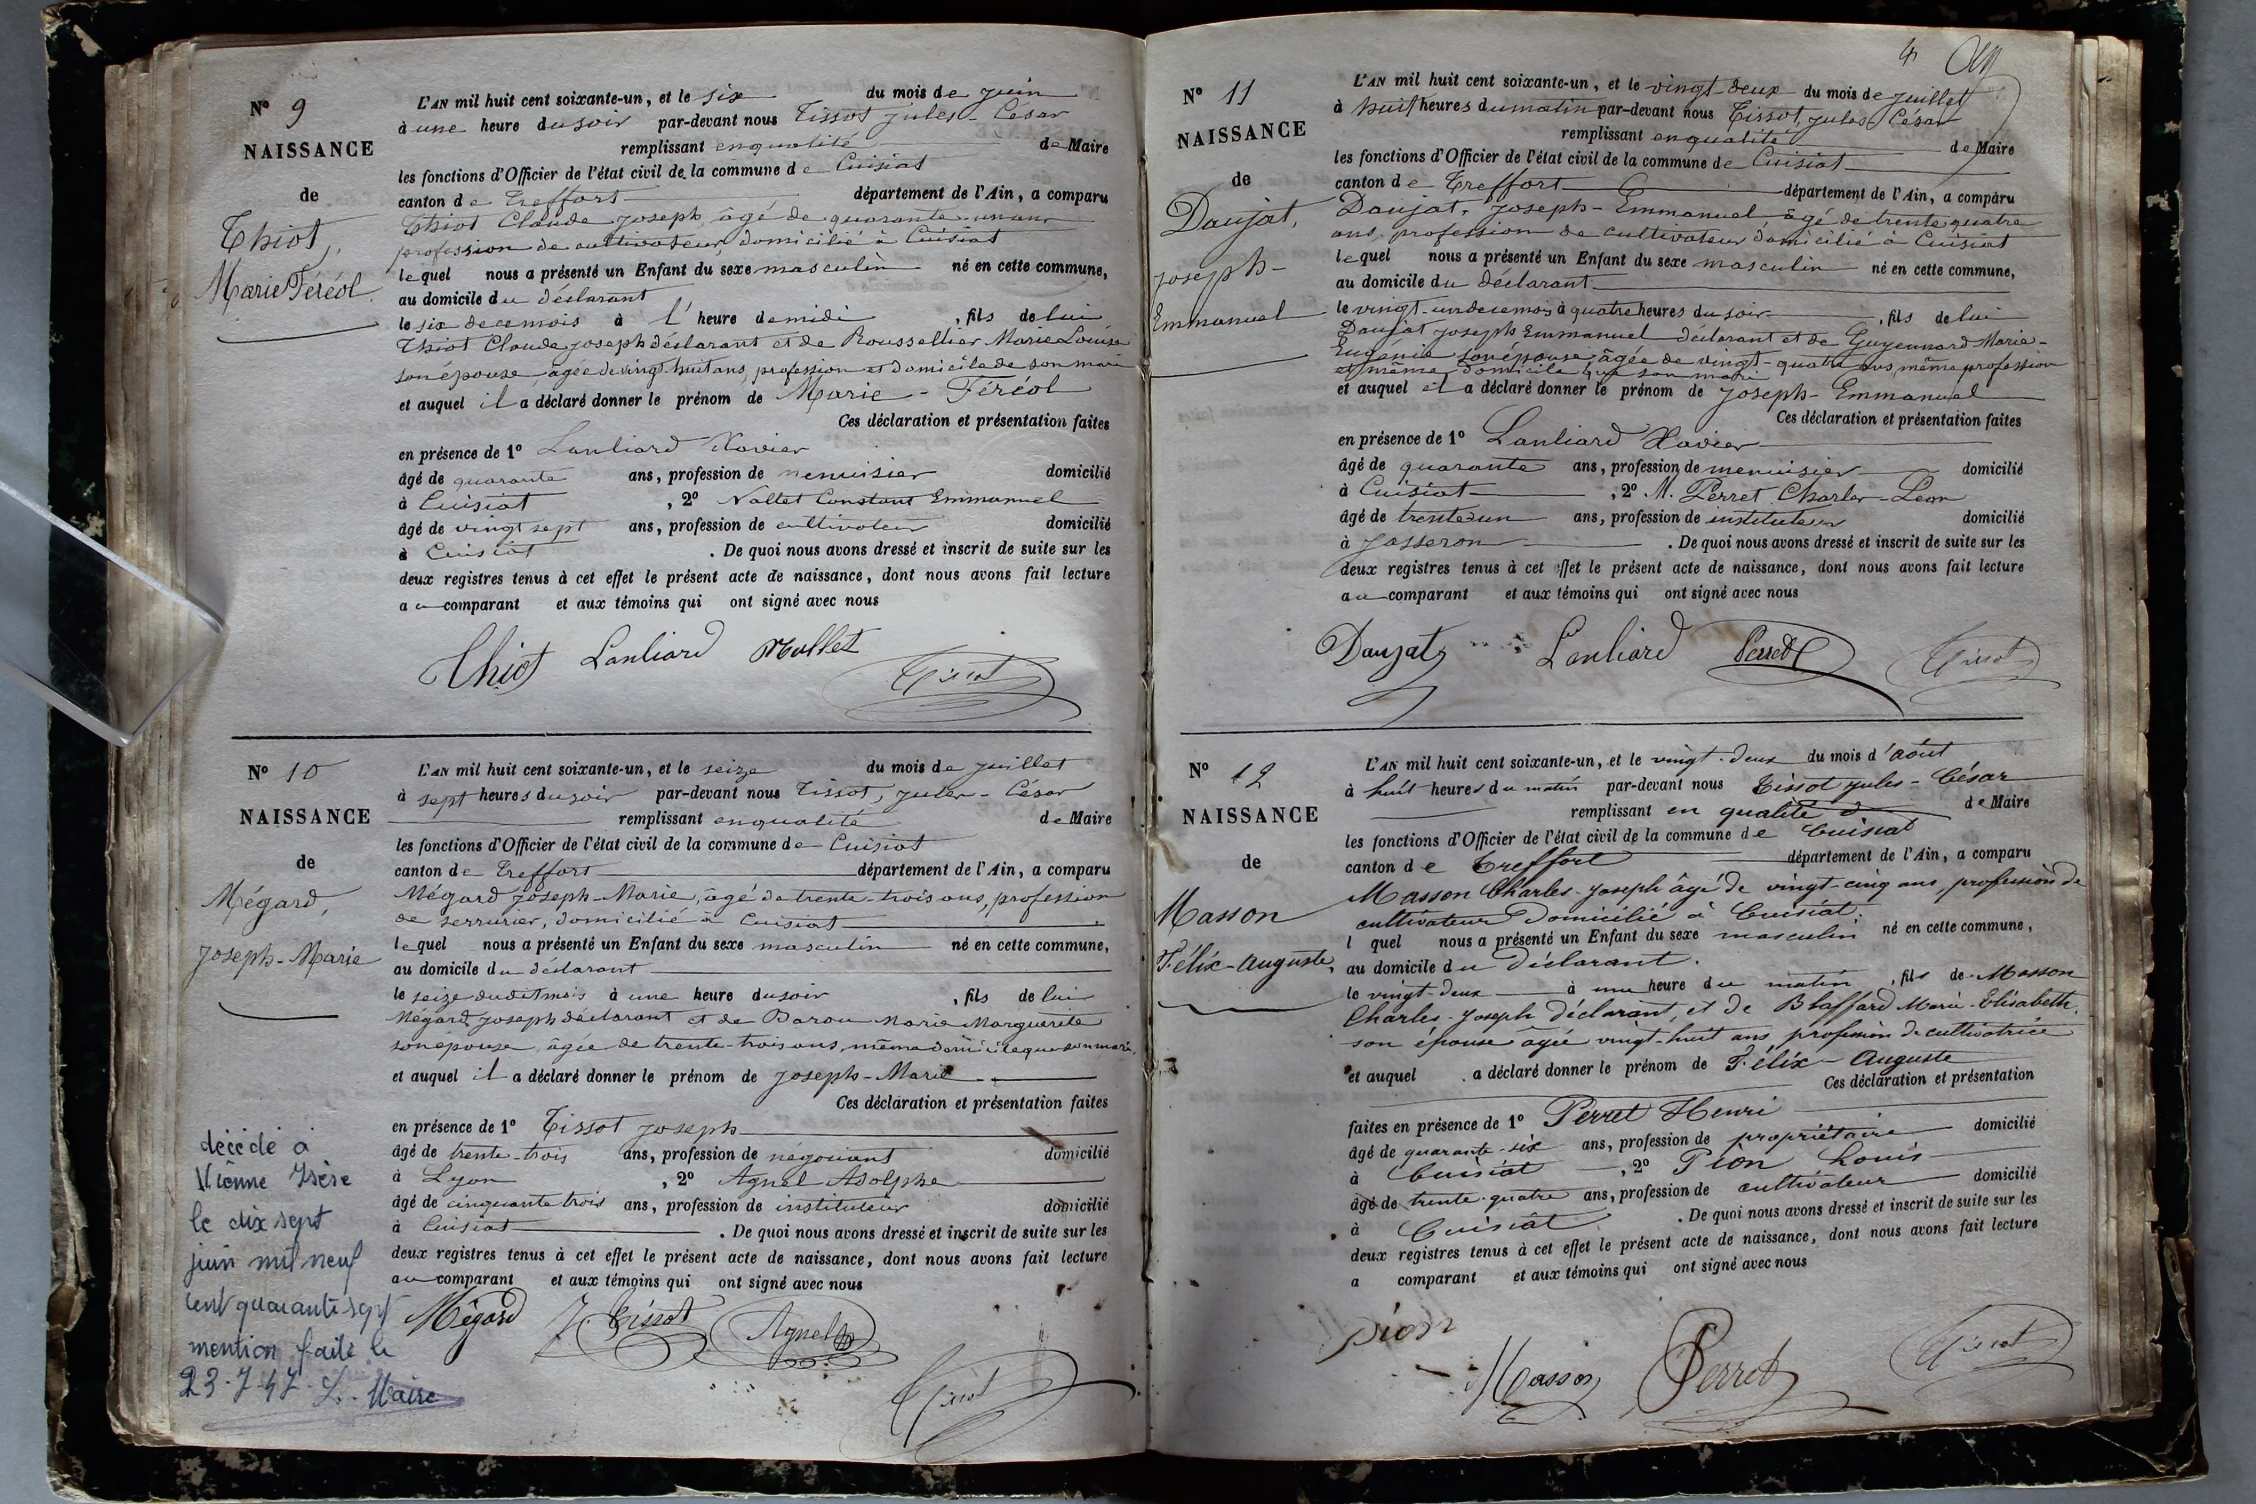 N° 9
NAISSANCE
de
Thiot,
Marie Féréol.
L'AN mil huit cent soixante-un, et le six du mois de juin
à une heure du soir par-devant nous Tissot jules-César
remplissant en qualité de Maire
les fonctions d'Officier de l'état civil de la commune de Cuisiat
canton de Treffort département de l'Ain, a comparu
Thiot Claude joseph, âgé de quarante-un ans
profession de cultivateur, domicilié à Cuisiat
lequel nous a présenté un Enfant du sexe masculin né en cette commune,
au domicile du déclarant
le six de ce mois à l'heure de midi, fils de lui
Thiot Claude joseph déclarant et de Roussellier Marie Louise
son épouse, âgée de vingt huit ans, profession et domicile de son mari
et auquel il a déclaré donner le prénom de Marie-Féréol
Ces déclaration et présentation faites
en présence de 1° Lanliard Xavier
âgé de quarante ans, profession de menuisier domicilié
à Cuisiat, 2° Nallet Constant Emmanuel
âgé de vingt sept ans, profession de cultivateur domicilié
à Cuisiat. De quoi nous avons dressé et inscrit de suite sur les
deux registres tenus à cet effet le présent acte de naissance, dont nous avons fait lecture
au comparant et aux témoins qui ont signé avec nous
Thiot Lanliard Nallet
Tissot
N° 10
NAISSANCE
de
Mégard,
Joseph-Marie
L'AN mil huit cent soixante-un, et le seize du mois de juillet
à sept heures du soir par-devant nous Tissot, jules-César
remplissant en qualité de Maire
les fonctions d'Officier de l'état civil de la commune de Cuisiat
canton de Treffort département de l'Ain, a comparu
Mégard joseph-Marie, âgé de trente-trois ans, profession
de serrurier, domicilié à Cuisiat
lequel nous a présenté un Enfant du sexe masculin né en cette commune,
au domicile du déclarant
le seize dudit mois à une heure du soir, fils de lui
Mégard joseph déclarant et de Darou Marie Marguerite
son épouse, âgée de trente-trois ans, même domicile que son mari,
et auquel il a déclaré donner le prénom de joseph-Marie
Ces déclaration et présentation faites
en présence de 1° Tissot joseph
âgé de trente-trois ans, profession de négociant domicilié
à Lyon, 2° Agnel Adolphe
âgé de cinquante trois ans, profession de instituteur domicilié
à Cuisiat. De quoi nous avons dressé et inscrit de suite sur les
deux registres tenus à cet effet le présent acte de naissance, dont nous avons fait lecture
au comparant et aux témoins qui ont signé avec nous
Mégard J Tissot Agnel
Tissot
décédé à
Vienne Isère
le dix sept
juin mil neuf
cent quarante sept
mention faite le
23-7-47. L. Maire
4
N° 11
NAISSANCE
de
Daujat,
joseph-
Emmanuel
L'AN mil huit cent soixante-un, et le vingt deux du mois de juillet
à huit heures du matin par-devant nous Tissot, jules César
remplissant en qualité de Maire
les fonctions d'Officier de l'état civil de la commune de Cuisiat
canton de Treffort département de l'Ain, a comparu
Daujat, joseph-Emmanuel âgé de trente quatre
ans, profession de cultivateur domicilié à Cuisiat
lequel nous a présenté un Enfant du sexe masculin né en cette commune,
au domicile du déclarant
le vingt-un de ce mois à quatre heures du soir, fils de lui
Daujat joseph Emmanuel déclarant et de Guyennard Marie-
Eugénie son épouse, âgée de vingt-quatre ans, même profession
et même domicile que son mari
et auquel il a déclaré donner le prénom de joseph-Emmanuel
Ces déclaration et présentation faites
en présence de 1° Lanliard Xavier
âgé de quarante ans, profession de menuisier domicilié
à Cuisiat, 2° M. Perret Charles-Léon
âgé de trente un ans, profession de instituteur domicilié
à Jasseron. De quoi nous avons dressé et inscrit de suite sur les
deux registres tenus à cet effet le présent acte de naissance, dont nous avons fait lecture
au comparant et aux témoins qui ont signé avec nous
Daujat Lanliard Perret Tissot
N° 12
NAISSANCE
de
Masson
Félix-Auguste,
L'AN mil huit cent soixante-un, et le vingt-deux du mois d'août
à huit heures du matin par-devant nous Tissot jules-César
remplissant en qualité d de Maire
les fonctions d'Officier de l'état civil de la commune de Cuisiat
canton de Treffort département de l'Ain, a comparu
Masson Charles-joseph âgé de vingt-cinq ans, profession de
cultivateur domicilié à Cuisiat,
l quel nous a présenté un Enfant du sexe masculin né en cette commune,
au domicile du Déclarant.
le vingt-deux à une heure du matin, fils de Masson
Charles-joseph Déclarant, et de Blaffard Marie-Elisabeth,
son épouse âgée vingt-huit ans, profession de cultivatrice
et auquel a déclaré donner le prénom de Félix-Auguste
Ces déclaration et présentation
faites en présence de 1° Perret Henri
âgé de quarante-six ans, profession de propriétaire domicilié
à Cuisiat, 2° Pion Louis
âgé de trente-quatre ans, profession de cultivateur domicilié
à Cuisiat. De quoi nous avons dressé et inscrit de suite sur les
deux registres tenus à cet effet le présent acte de naissance, dont nous avons fait lecture
a comparant et aux témoins qui ont signé avec nous
pion
Masson Perret Tissot